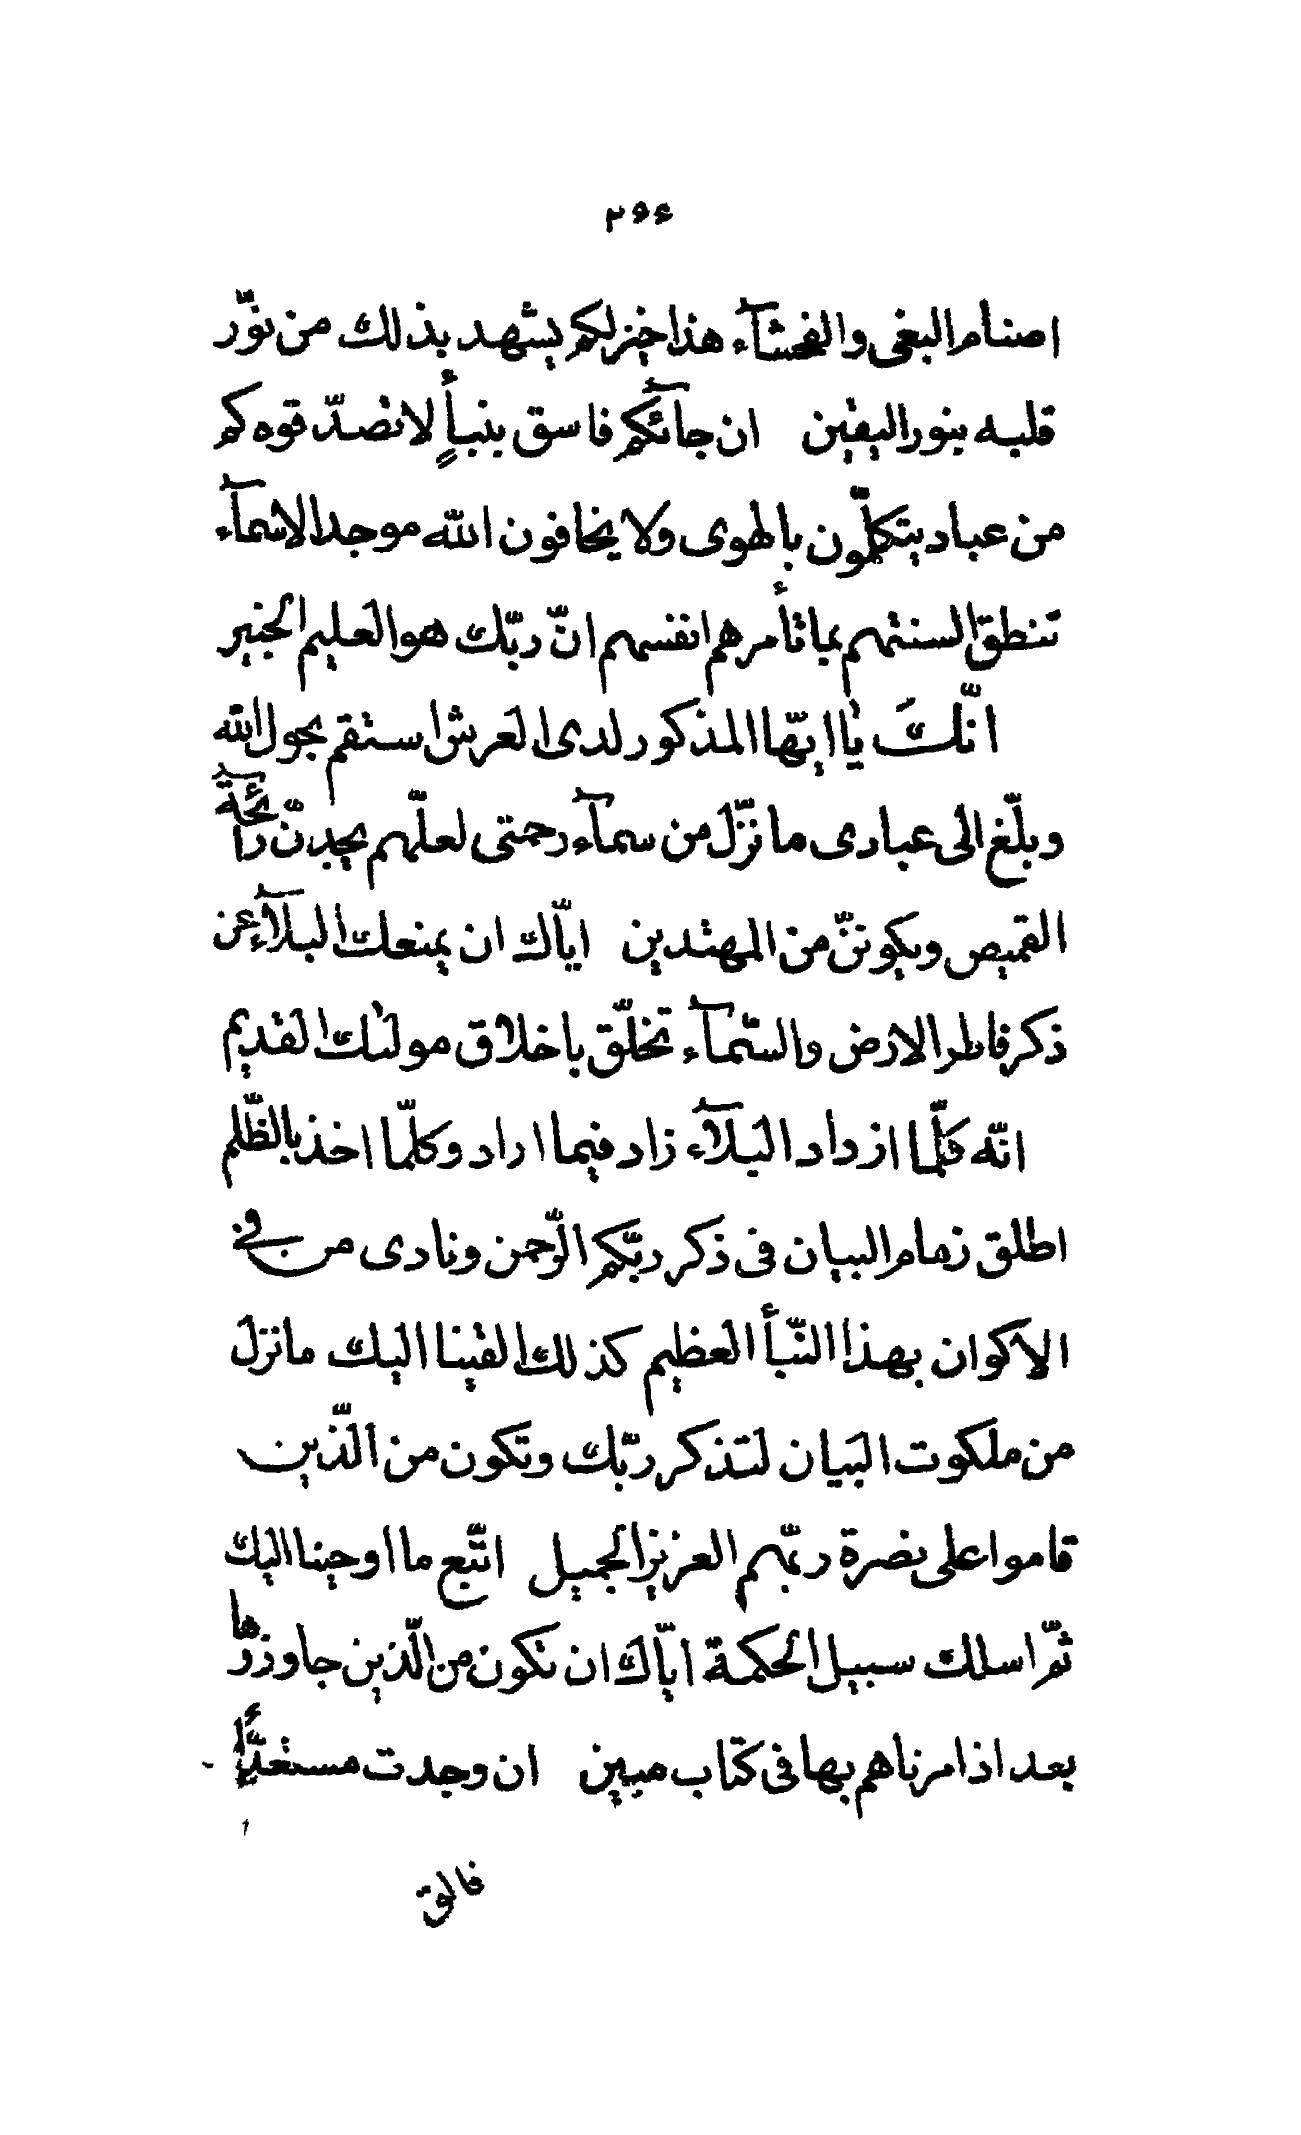 ۲۹۴
اصنام البغى والفحشآء هذا خير لكم يشهد بذلك من نوّر
قلبه بنور اليقين ان جآئكم فاسق بنبأٍ لا تصدّقوه كم
من عباد يتكلّمون بالهوى ولا يخافون الله موجد الاسمآء
تنطق السنتهم بما تأمرهم انفسهم انّ ربّك هو العليم الخبير
انّك يا ايّها المذكور لدى العرش استقم بحول الله
وبلّغ الى عبادى ما نزّل من سمآء رحمتى لعلّهم يجدنّ رآئحة
القميص ويكوننّ من المهتدين ايّاك ان يمنعك البلآء عن
ذكر فاطر الارض والسّمآء تخلّق باخلاق موليك القديم
انّه كلّما ازداد البلآء زاد فيما اراد وكلّما اخذ بالظّلم
اطلق زمام البيان فى ذكر ربّكم الرّحمن ونادى من فى
الاكوان بهذا النّبأ العظيم كذلك القينا اليك ما نزل
من ملكوت البيان لتذكر ربّك وتكون من الّذين
قاموا على نصرة ربّهم العزيز الجميل اتّبع ما اوحينا اليك
ثمّ اسلك سبيل الحكمة ايّاك ان تكون من الّذين جاوزوها
بعد اذ امرناهم بها فى كتاب مبين ان وجدت مستعدّاً
فالق